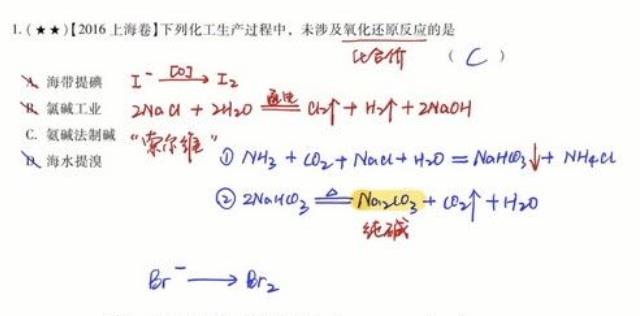 1.(★★)【2016 上海卷】下列化工生产过程中,未涉及氧化还原反应的是
化合价 ( C )
A. 海带提碘 I⁻ —[O]→ I₂
B. 氯碱工业 2NaCl + 2H₂O =通电= Cl₂↑ + H₂↑ + 2NaOH
C. 氨碱法制碱 “索尔维”
① NH₃ + CO₂ + NaCl + H₂O = NaHCO₃↓ + NH₄Cl
D. 海水提溴
② 2NaHCO₃ =△= Na₂CO₃ + CO₂↑ + H₂O
纯碱
Br⁻ → Br₂